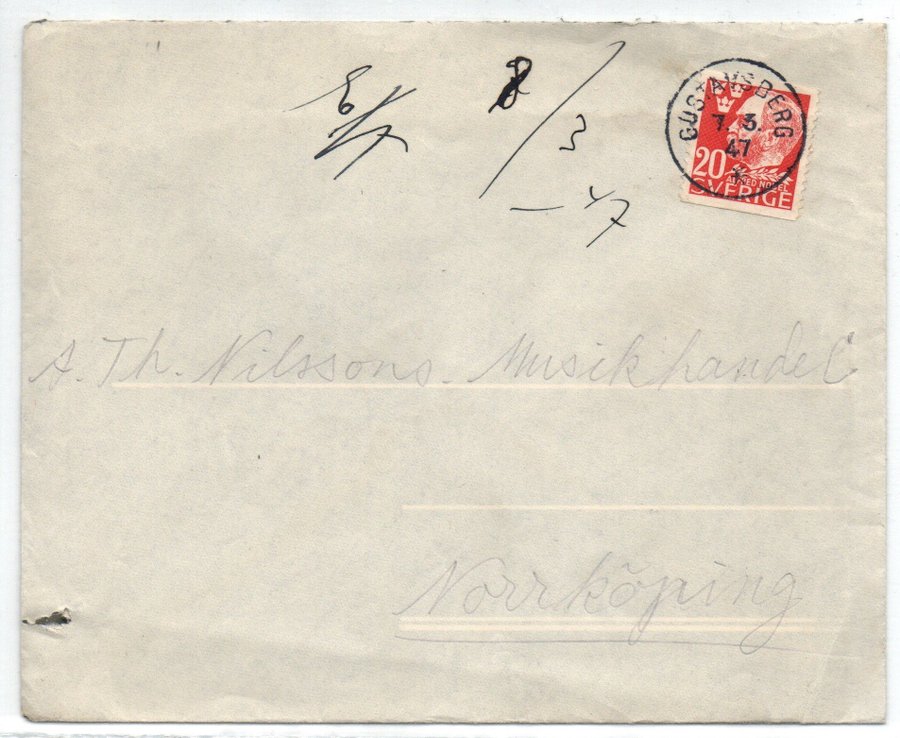 8/3
- 47
GUSTAVSBERG
7. 3.
47
20
ALFRED NOBEL
SVERIGE
A. Th. Nilssons. Musikhandel
Norrköping